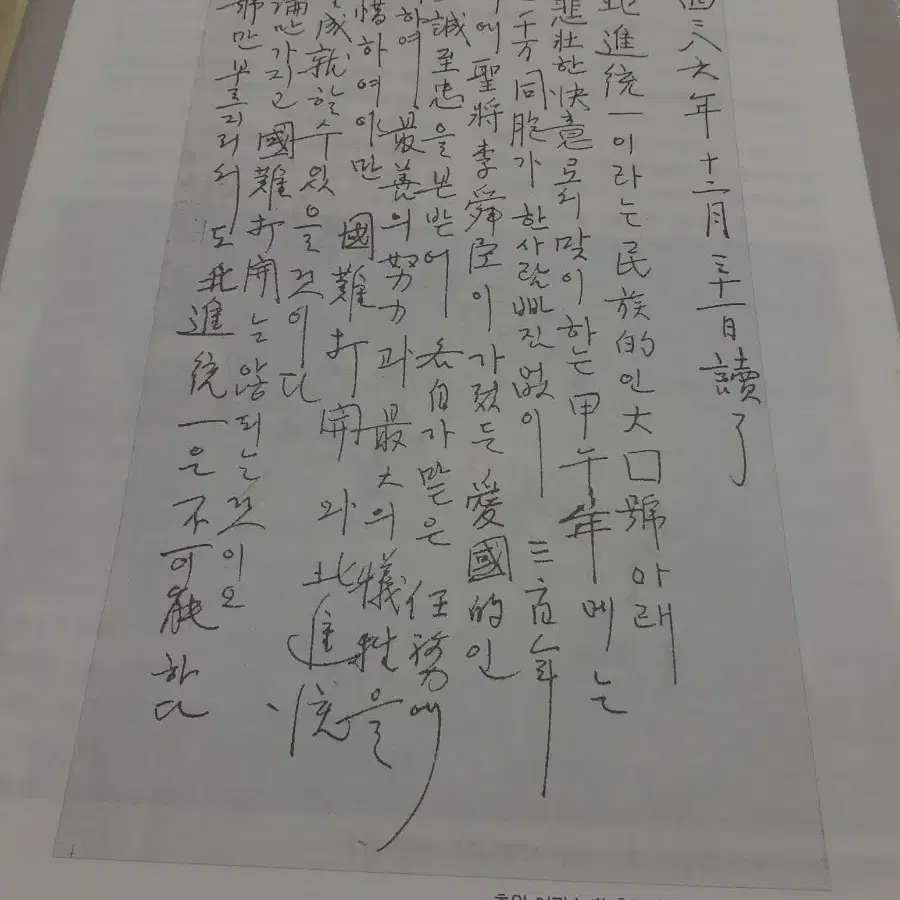 三八六年 十二月 三十一日 讀了
北進統一이라는 民族的인 大口號 아래
悲壯한 快意로의 맞이하는 甲午年에는
千万 同胞가 한사람 빠진없이 三百年
에 聖將 李舜臣이 가졌든 愛國的인
誠至忠을 본받어 各自가 맡은 任務에
하여 最善의 努力과 最大의 犧牲을
惜하여야만 國難打開와 北進統
成就할수있을것이다
論만가지고 國難打開는않되는것이오
號만 부르지러도 北進統一은 不可能하다